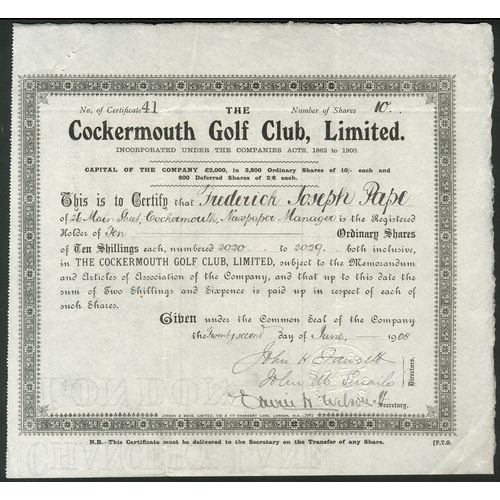 No. of Certificate 41 THE Number of Shares 10
Cockermouth Golf Club, Limited.
INCORPORATED UNDER THE COMPANIES ACTS, 1862 to 1900.
CAPITAL OF THE COMPANY £2,000, in 3,800 Ordinary Shares of 10/- each and
800 Deferred Shares of 2/6 each.
This is to Certify that Frederick Joseph Pape
of 26 Main Street, Cockermouth, Newspaper Manager is the Registered
Holder of Ten Ordinary Shares
of Ten Shillings each, numbered 2020 to 2029 both inclusive,
in THE COCKERMOUTH GOLF CLUB, LIMITED, subject to the Memorandum
and Articles of Association of the Company, and that up to this date the
sum of Two Shillings and Sixpence is paid up in respect of each of
such Shares.
Given under the Common Seal of the Company
the Twenty second day of June 1908
John H
John
Directors.
Wilson
Secretary.
JORDAN & SONS, LIMITED, 116 & 117 CHANCERY LANE, LONDON, W.C.
N.B.—This Certificate must be delivered to the Secretary on the Transfer of any Share. [P.T.O.